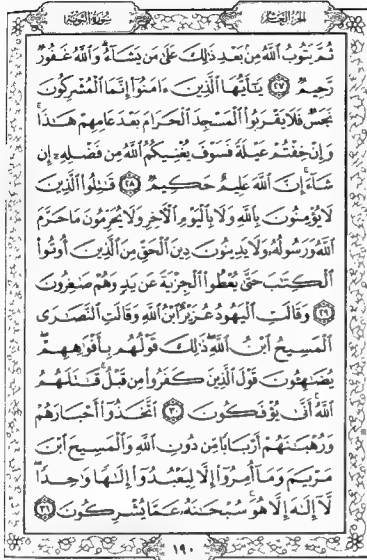 الجزء العاشر سورة التوبة
ثُمَّ يَتُوبُ ٱللَّهُ مِنۢ بَعْدِ ذَٰلِكَ عَلَىٰ مَن يَشَآءُ وَٱللَّهُ غَفُورٌ
رَّحِيمٌ ٢٧ يَٰٓأَيُّهَا ٱلَّذِينَ ءَامَنُوٓا۟ إِنَّمَا ٱلْمُشْرِكُونَ
نَجَسٌ فَلَا يَقْرَبُوا۟ ٱلْمَسْجِدَ ٱلْحَرَامَ بَعْدَ عَامِهِمْ هَٰذَا
وَإِنْ خِفْتُمْ عَيْلَةً فَسَوْفَ يُغْنِيكُمُ ٱللَّهُ مِن فَضْلِهِۦٓ إِن
شَآءَ إِنَّ ٱللَّهَ عَلِيمٌ حَكِيمٌ ٢٨ قَٰتِلُوا۟ ٱلَّذِينَ
لَا يُؤْمِنُونَ بِٱللَّهِ وَلَا بِٱلْيَوْمِ ٱلْءَاخِرِ وَلَا يُحَرِّمُونَ مَا حَرَّمَ
ٱللَّهُ وَرَسُولُهُۥ وَلَا يَدِينُونَ دِينَ ٱلْحَقِّ مِنَ ٱلَّذِينَ أُوتُوا۟
ٱلْكِتَٰبَ حَتَّىٰ يُعْطُوا۟ ٱلْجِزْيَةَ عَن يَدٍ وَهُمْ صَٰغِرُونَ
٢٩ وَقَالَتِ ٱلْيَهُودُ عُزَيْرٌ ٱبْنُ ٱللَّهِ وَقَالَتِ ٱلنَّصَٰرَى
ٱلْمَسِيحُ ٱبْنُ ٱللَّهِ ذَٰلِكَ قَوْلُهُم بِأَفْوَٰهِهِمْ
يُضَٰهِـُٔونَ قَوْلَ ٱلَّذِينَ كَفَرُوا۟ مِن قَبْلُ قَٰتَلَهُمُ
ٱللَّهُ أَنَّىٰ يُؤْفَكُونَ ٣٠ ٱتَّخَذُوٓا۟ أَحْبَارَهُمْ
وَرُهْبَٰنَهُمْ أَرْبَابًا مِّن دُونِ ٱللَّهِ وَٱلْمَسِيحَ ٱبْنَ
مَرْيَمَ وَمَآ أُمِرُوٓا۟ إِلَّا لِيَعْبُدُوٓا۟ إِلَٰهًا وَٰحِدًا
لَّآ إِلَٰهَ إِلَّا هُوَ سُبْحَٰنَهُۥ عَمَّا يُشْرِكُونَ ٣١
١٩٠